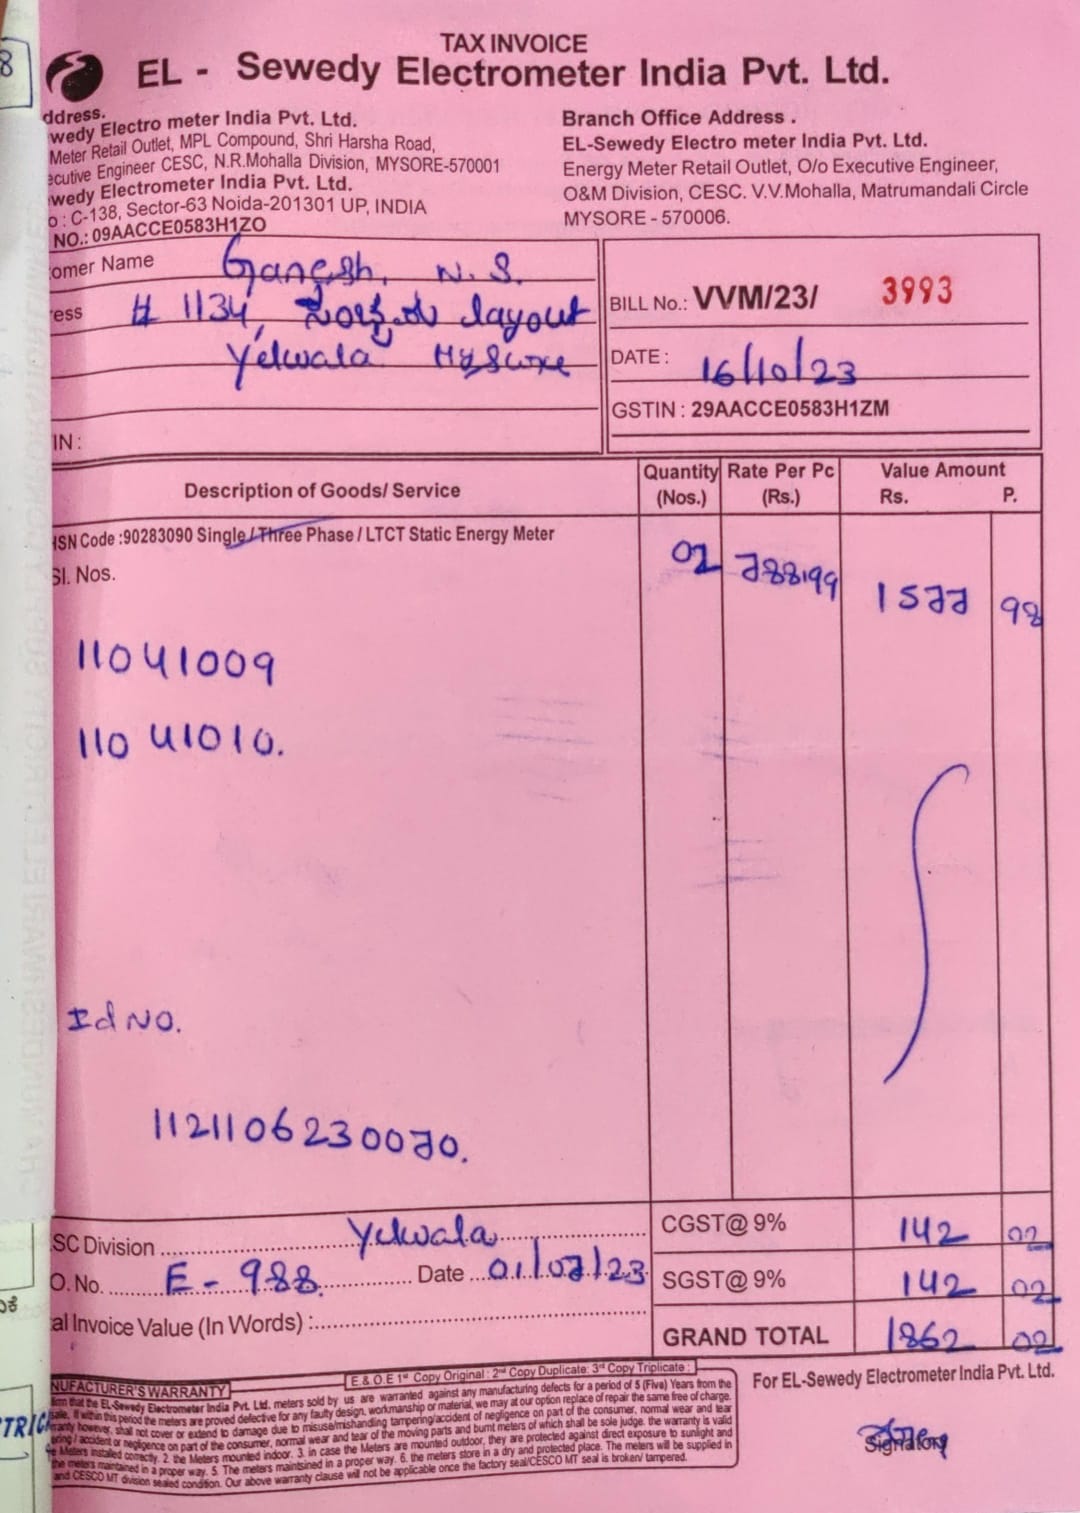 TAX INVOICE
EL - Sewedy Electrometer India Pvt. Ltd.
ddress.
wedy Electro meter India Pvt. Ltd.
Meter Retail Outlet, MPL Compound, Shri Harsha Road,
ecutive Engineer CESC, N.R.Mohalla Division, MYSORE-570001
wedy Electrometer India Pvt. Ltd.
o : C-138, Sector-63 Noida-201301 UP, INDIA
NO.: 09AACCE0583H1ZO
Branch Office Address .
EL-Sewedy Electro meter India Pvt. Ltd.
Energy Meter Retail Outlet, O/o Executive Engineer,
O&M Division, CESC. V.V.Mohalla, Matrumandali Circle
MYSORE - 570006.
omer Name Ganesh. N. S.
ress # 1134, layout
Yelwala Mysore
IN :
BILL No.: VVM/23/ 3993
DATE : 16/10/23
GSTIN : 29AACCE0583H1ZM
Description of Goods/ Service Quantity (Nos.) Rate Per Pc (Rs.) Value Amount Rs. P.
HSN Code :90283090 Single / Three Phase / LTCT Static Energy Meter
Sl. Nos.
02 788.99 1577 98
11041009
11041010.
Id No.
1121106230070.
SC Division Yelwala
O. No. E - 988. Date 01/07/23
al Invoice Value (In Words) :
CGST@ 9% 142 02
SGST@ 9% 142 02
GRAND TOTAL 1862 02
E.& O.E 1st Copy Original : 2nd Copy Duplicate: 3rd Copy Triplicate :
NUFACTURER'S WARRANTY
irm that the EL-Sewedy Electrometer India Pvt. Ltd. meters sold by us are warranted against any manufacturing defects for a period of 5 (Five) Years from the
sale. If within this period the meters are proved defective for any faulty design, workmanship or material, we may at our option replace of repair the same free of charge.
ranty however, shall not cover or extend to damage due to misuse/mishandling tampering/accident of negligence on part of the consumer, normal wear and tear
ering / accident or negligence on part of the consumer, normal wear and tear of the moving parts and burnt meters of which shall be sole judge. the warranty is valid
Meters installed correctly. 2. the Meters mounted indoor. 3. in case the Meters are mounted outdoor, they are protected against direct exposure to sunlight and
the meters maintained in a proper way. 5. The meters maintsined in a proper way. 6. the meters store in a dry and protected place. The meters will be supplied in
and CESCO MT division sealed condition. Our above warranty clause will not be applicable once the factory seal/CESCO MT seal is broken/ tampered.
For EL-Sewedy Electrometer India Pvt. Ltd.
Signatory